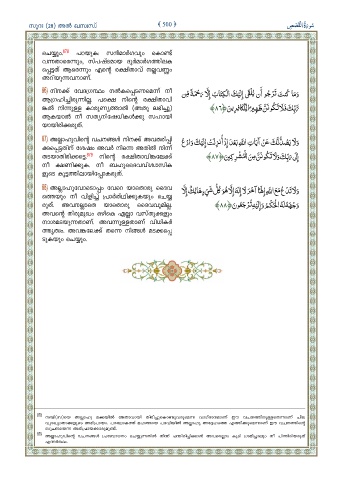 സൂറ: (28) അൽ ഖസസ്
﴾ 500 ﴿
سُورَةُ القَصَصِ
ചെയ്യും.(20) പറയുക: സന്മാർഗവും കൊണ്ട്
വന്നതാരെന്നും, സ്പഷ്ടമായ ദുർമാർഗത്തിലക
പ്പെട്ടത് ആരെന്നും എന്റെ രക്ഷിതാവ് നല്ലവണ്ണം
അറിയുന്നവനാണ്.
86 നിനക്ക് വേദഗ്രന്ഥം നൽകപ്പെടണമെന്ന് നീ
ആഗ്രഹിച്ചിരുന്നില്ല. പക്ഷെ നിന്റെ രക്ഷിതാവി
ങ്കൽ നിന്നുള്ള കാരുണ്യത്താൽ (അതു ലഭിച്ചു)
ആകയാൽ നീ സത്യനിഷേധികൾക്കു സഹായി
യായിരിക്കരുത്.
وَمَا كُنتَ تَرْجُو أَن يُلْقَى إِلَيْكَ الْكِتَابُ إِلَّا رَحْمَةً مِّن
رَّبِّكَ فَلَا تَكُونَنَّ ظَهِيرًا لِّلْكَافِرِينَ ﴿٨٦﴾
87 അല്ലാഹുവിന്റെ വചനങ്ങൾ നിനക്ക് അവതരിപ്പി
ക്കപ്പെട്ടതിന് ശേഷം അവർ നിന്നെ അതിൽ നിന്ന്
തടയാതിരിക്കട്ടെ. നിന്റെ രക്ഷിതാവിങ്കലേക്ക്
നീ ക്ഷണിക്കുക. നീ ബഹുദൈവവിശ്വാസിക
ളുടെ കൂട്ടത്തിലായിപ്പോകരുത്.
وَلَا يَصُدُّنَّكَ عَنْ آيَاتِ اللَّهِ بَعْدَ إِذْ أُنزِلَتْ إِلَيْكَ وَادْعُ
إِلَى رَبِّكَ وَلَا تَكُونَنَّ مِنَ الْمُشْرِكِينَ ﴿٨٧﴾
88 അല്ലാഹുവോടൊപ്പം വേറെ യാതൊരു ദൈവ
ത്തെയും നീ വിളിച്ച് പ്രാർത്ഥിക്കുകയും ചെയ്യ
രുത്. അവനല്ലാതെ യാതൊരു ദൈവവുമില്ല.
അവന്റെ തിരുമുഖം ഒഴികെ എല്ലാ വസ്തുക്കളും
നാശമടയുന്നതാണ്. അവന്നുള്ളതാണ് വിധികർ
ത്തൃത്വം. അവങ്കലേക്ക് തന്നെ നിങ്ങൾ മടക്കപ്പെ
ടുകയും ചെയ്യും.
وَلَا تَدْعُ مَعَ اللَّهِ إِلَهًا آخَرَ لَا إِلَهَ إِلَّا هُوَ كُلُّ شَيْءٍ هَالِكٌ إِلَّا
وَجْهَهُ لَهُ الْحُكْمُ وَإِلَيْهِ تُرْجَعُونَ ﴿٨٨﴾